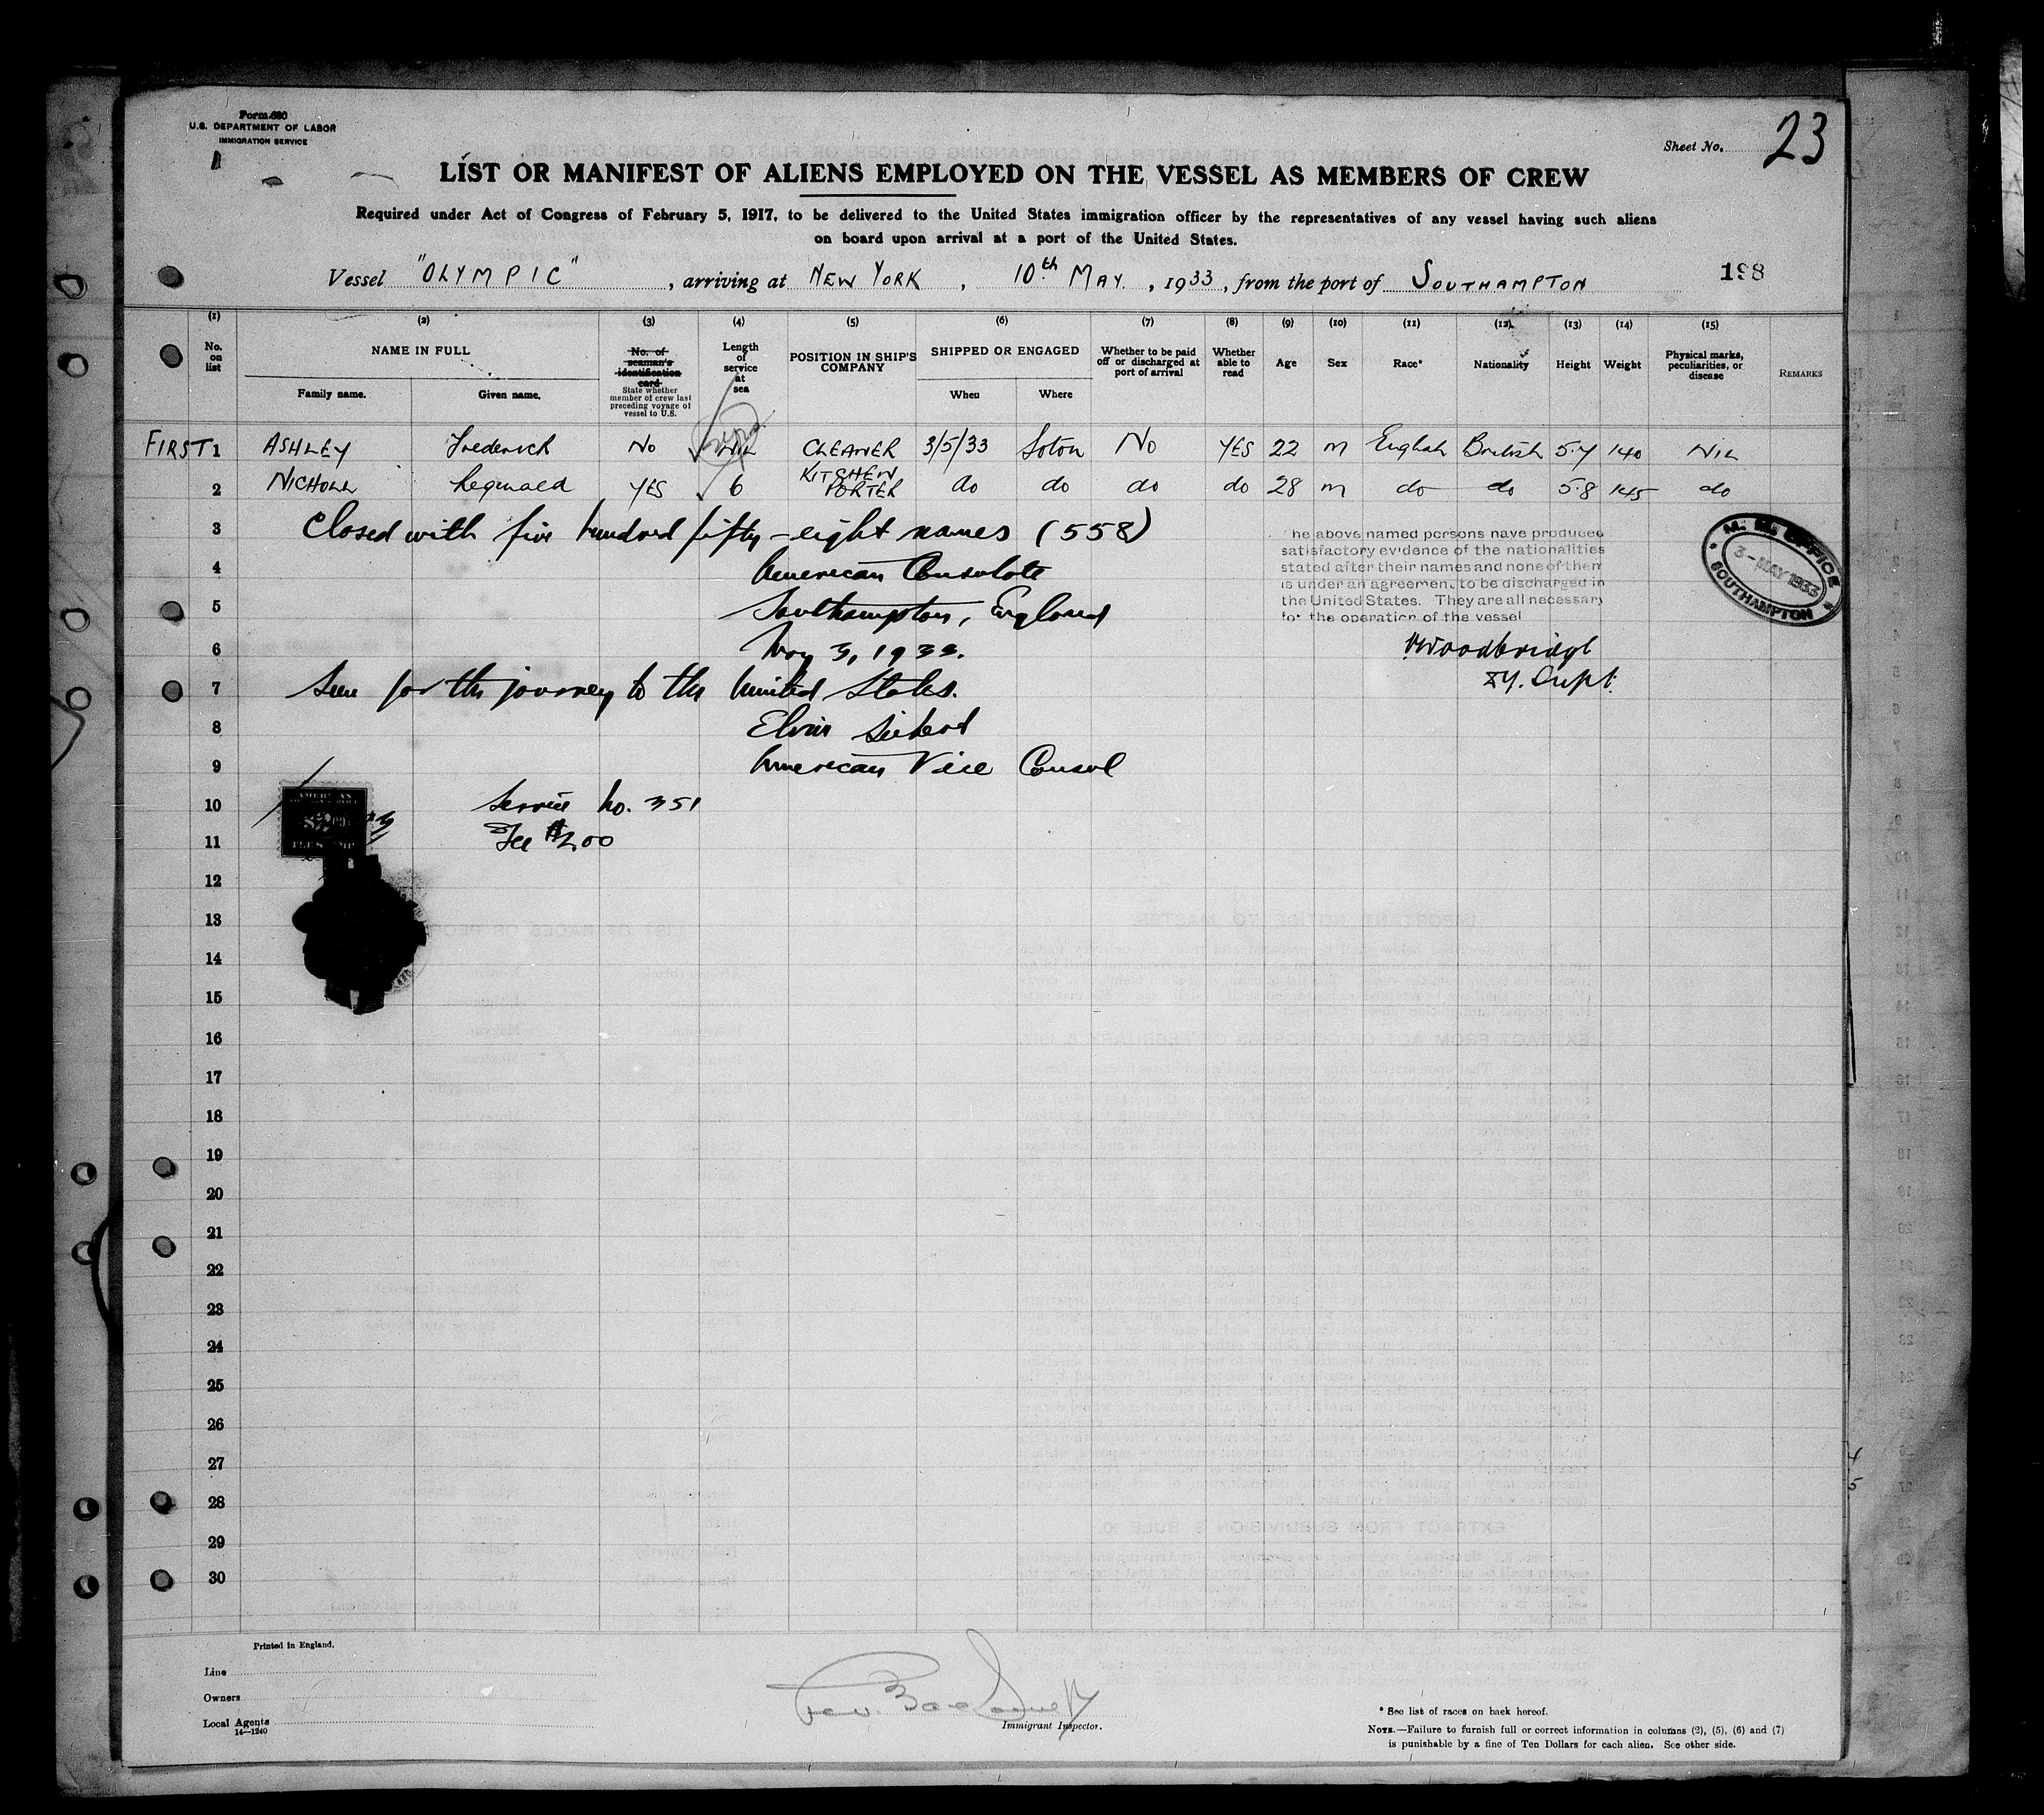 Form 680
U.S. DEPARTMENT OF LABOR
IMMIGRATION SERVICE
Sheet No. 23
LIST OR MANIFEST OF ALIENS EMPLOYED ON THE VESSEL AS MEMBERS OF CREW
Required under Act of Congress of February 5, 1917, to be delivered to the United States immigration officer by the representatives of any vessel having such aliens
on board upon arrival at a port of the United States.
Vessel "OLYMPIC", arriving at NEW YORK, 10th MAY, 1933, from the port of SOUTHAMPTON 198
(1) (2) (3) (4) (5) (6) (7) (8) (9) (10) (11) (12) (13) (14) (15)
No. on list
NAME IN FULL
Family name. Given name.
No. of seaman's identification card
State whether member of crew last preceding voyage of vessel to U.S.
Length of service at sea
POSITION IN SHIP'S COMPANY
SHIPPED OR ENGAGED
When Where
Whether to be paid off or discharged at port of arrival
Whether able to read
Age
Sex
Race*
Nationality
Height
Weight
Physical marks, peculiarities, or disease
REMARKS
FIRST 1 ASHLEY Frederick No NIL CLEANER 3/5/33 Soton No YES 22 M English British 5·7 140 NIL
2 NICHOLL Reginald YES 6 KITCHEN PORTER do do do do 28 M do do 5·8 145 do
3 Closed with five hundred fifty-eight names (558)
4 American Consulate
5 Southampton, England
6 May 3, 1933.
7 Seen for the journey to the United States.
8 Elvin Seibert
9 American Vice Consul
10 Service No. 351
11 Fee $2.00
The above named persons have produced
satisfactory evidence of the nationalities
stated after their names and none of them
is under an agreement to be discharged in
the United States. They are all necessary
for the operation of the vessel
Woodbridge
Supt.
M. M. OFFICE
3-MAY 1933
SOUTHAMPTON
AMERICAN
12
13
14
15
16
17
18
19
20
21
22
23
24
25
26
27
28
29
30
Printed in England.
Line
Owners
Local Agents
14—1240
Immigrant Inspector.
* See list of races on back hereof.
NOTE.—Failure to furnish full or correct information in columns (2), (5), (6) and (7)
is punishable by a fine of Ten Dollars for each alien. See other side.